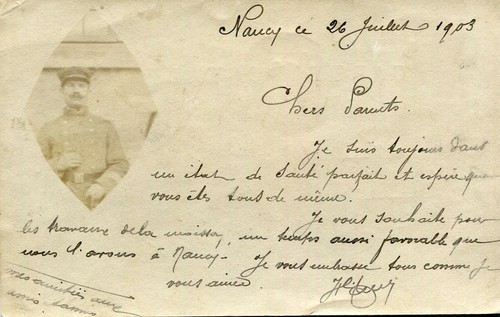 Nancy ce 26 Juillet 1903
Chers Parents.
Je suis toujours dans
un état de Santé parfait et espère que
vous êtes tous de même.
Je vous souhaite pour
les travaux de la moisson, un temps aussi favorable que
nous l'avons à Nancy. Je vous embrasse tous comme je
vous aime.
mes amitiés aux